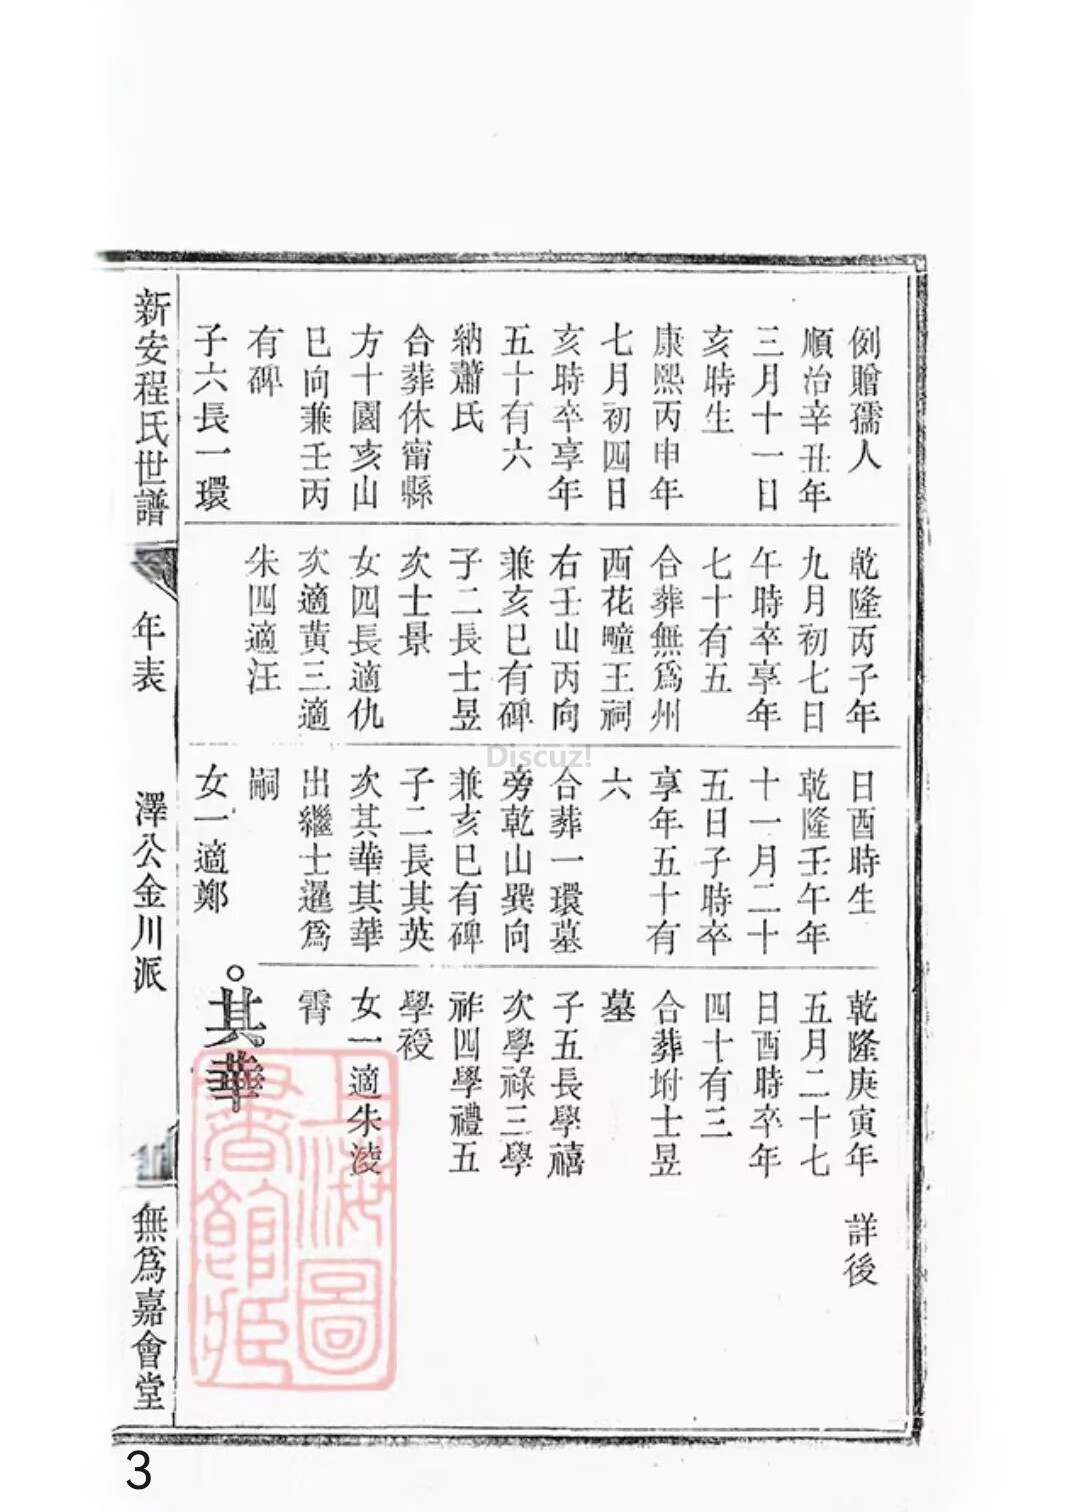 例贈孺人
順治辛丑年
三月十一日
亥時生
康熙丙申年
七月初四日
亥時卒享年
五十有六
納蕭氏
合葬休甯縣
方十園亥山
巳向兼壬丙
有碑
子六長一環
乾隆丙子年
九月初七日
午時卒享年
七十有五
合葬無爲州
西花疃王祠
右壬山丙向
兼亥巳有碑
子二長士昱
次士景
女四長適仇
次適黃三適
朱四適汪
日酉時生
乾隆壬午年
十一月二十
五日子時卒
享年五十有
六
合葬一環墓
旁乾山巽向
兼亥巳有碑
子二長其英
次其華其華
出繼士暹爲
嗣
女一適鄭
乾隆庚寅年
五月二十七
日酉時卒年
四十有三
合葬坿士昱
墓
子五長學禧
次學祿三學
祚四學禮五
學𥙿
女一適朱淩
霄
。其華
詳後
新安程氏世譜
年表
澤公金川派
無爲嘉會堂
上海圖
書館藏
Discuz!
3